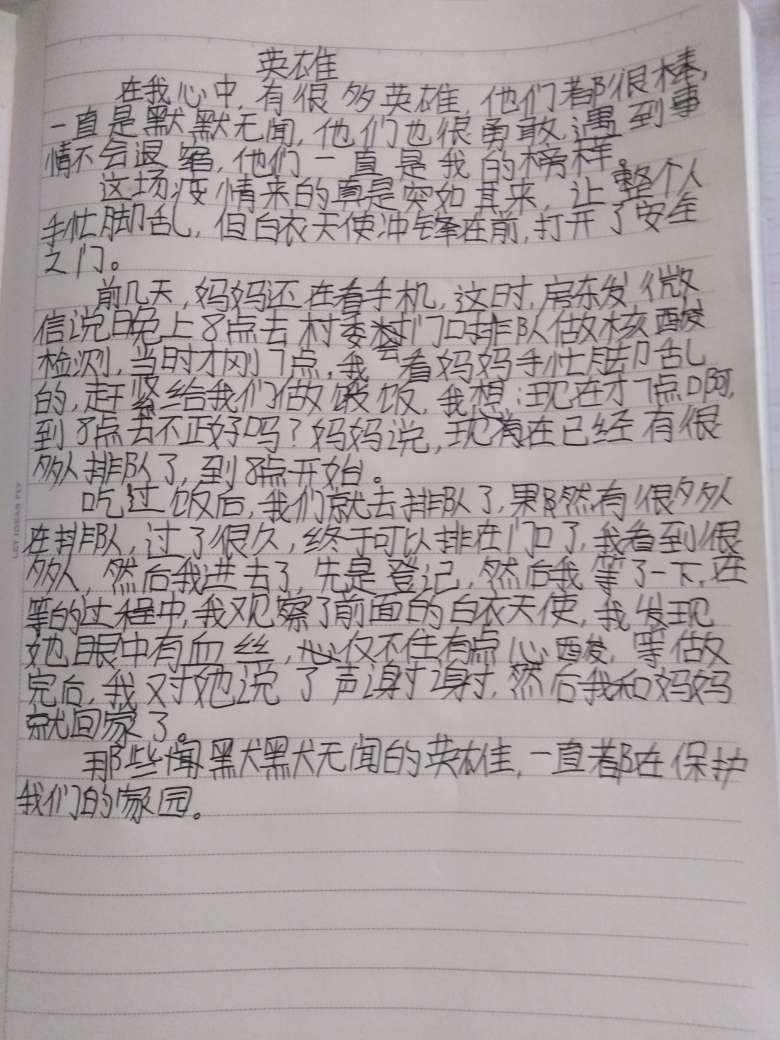 英雄
在我心中,有很多英雄,他们都很棒,
一直是默默无闻,他们也很勇敢,遇到事
情不会退缩,他们一直是我的榜样。
这场疫情来的真是突如其来,让整个人
手忙脚乱,但白衣天使冲锋在前,打开了安全
之门。
前几天,妈妈还在看手机,这时,房东发微
信说晚上8点去村委村门口排队做核酸
检测,当时才刚7点,我看妈妈手忙脚乱
的,赶紧给我们做饭,我想:现在才7点啊,
到8点去不正好吗?妈妈说,现在已经有很
多人排队了,到8点开始。
吃过饭后,我们就去排队了,果然有很多人
在排队,过了很久,终于可以排在门口了,我看到很
多人,然后我进去了,先是登记,然后我等了一下,在
等的过程中,我观察了前面的白衣天使,我发现
她眼中有血丝,仅不住有点心酸,等做
完后,我对她说了声谢谢,然后我和妈妈
就回家了。
那些默默无闻的英雄,一直都在保护
我们的家园。
LET IDEAS FLY